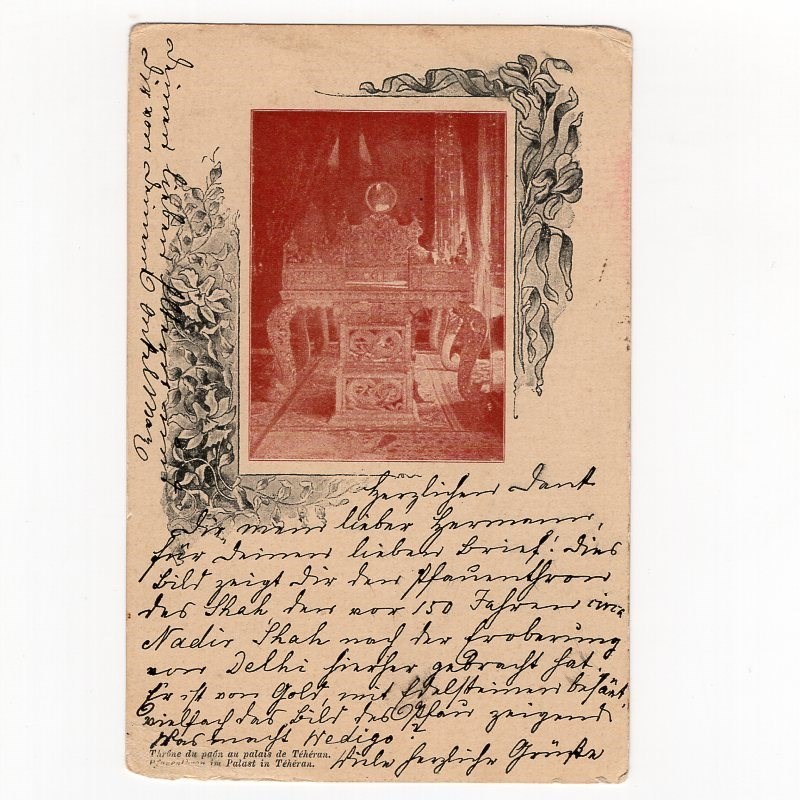 Herzlichen Dank
Dir mein lieber Hermann,
für Deinen lieben Brief! Dies
Bild zeigt Dir den Pfauenthron
des Shah den vor 150 Jahren circa
Nadir Shah nach der Eroberung
von Delhi hierher gebracht hat.
Er ist von Gold, mit Edelsteinen besät,
vielfach das Bild des Pfau zeigend
Was macht Wedigo?
Viele herzliche Grüße
Dir von Deinem Onkel
Deiner lieben
Thrône du paôn au palais de Téhéran.
Pfauenthron im Palast in Téhéran.